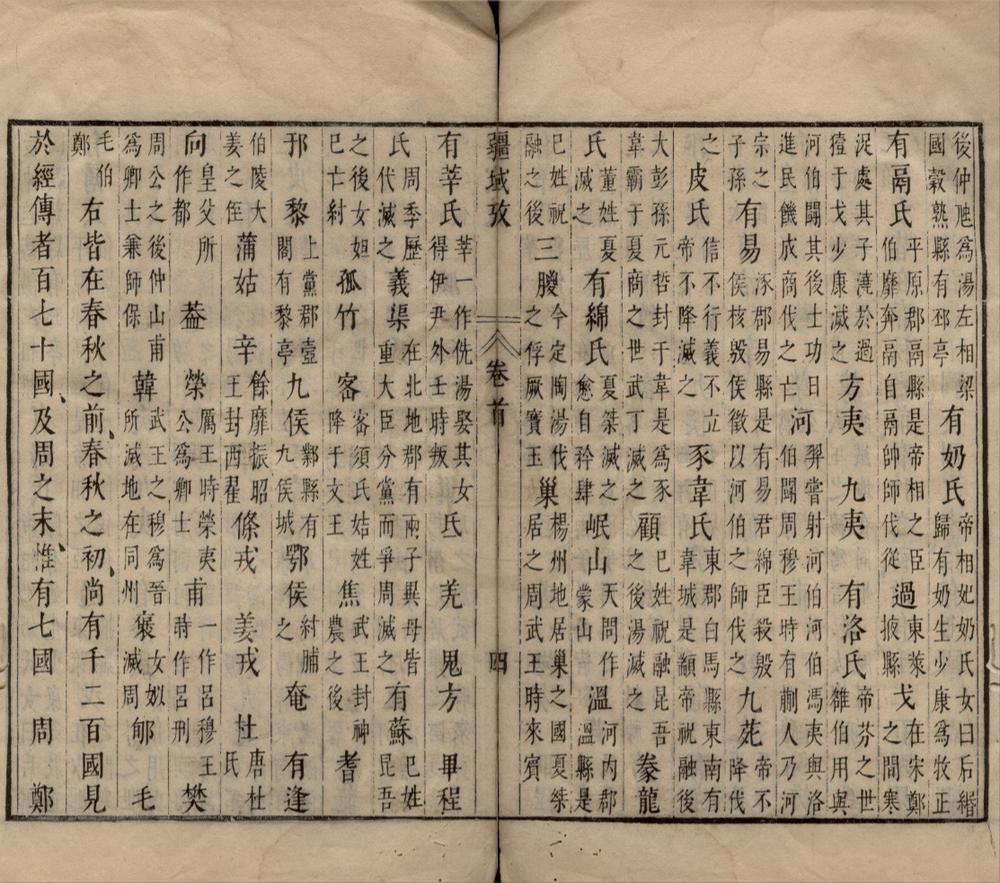 後仲虺爲湯左相梁國穀熟縣有邳亭有奶氏帝相妃奶氏女曰后緡歸有奶生少康爲牧正
有鬲氏平原郡鬲縣是帝相之臣伯靡奔鬲自鬲帥師伐從過東萊掖縣戈在宋鄭之間寒
浞處其子澆於過豷于戈少康滅之方夷　九夷　有洛氏帝芬之世雒伯用與
河伯鬭其後士功日進民饑成商伐之亡河羿嘗射河伯河伯馮夷與洛伯鬭周穆王時有蒯人乃河
宗之子孫有易涿郡易縣是有易君綿臣殺殷侯核毀侯徵以河伯之師伐之九苑帝不降伐
之皮氏信不行義不立帝不降滅之豕韋氏東郡白馬縣東南有韋城是顓帝祝融後
大彭孫元哲封于韋是爲豕韋霸于夏商之世武丁滅之顧巳姓祝融昆吾之後湯滅之豢龍
氏董姓夏滅之有緡氏夏桀滅之愈自矜肆岷山天問作蒙山溫河内郡溫縣是
巳姓祝融之後三朡今定陶湯伐之俘厥寶玉巢楊州地居巢之國夏桀居之周武王時來賓
疆域攷　卷首　四
有莘氏莘一作侁湯娶其女得伊尹外壬時叛氐　羌　鬼方　畢程
氏周季歷代滅之義渠在北地郡有兩子異母皆重大臣分黨而爭周滅之有蘇巳姓昆吾
之後女妲巳亡紂孤竹　密密須氏姞姓降于文王焦武王封神農之後耆
邘　黎上黨郡壼關有黎亭九侯鄴縣有九侯城鄂侯紂脯之奄　有逢
伯陵大姜之侄蒲姑　辛餘靡振昭王封西翟條戎　姜戎　杜唐杜氏
向皇父所作都葢　榮厲王時榮夷公爲卿士甫一作呂穆王蒔作呂刑樊
周公之後仲山甫爲卿士兼師保韓武王之穆爲晉所滅地在同州褒女姒滅周郇　毛
毛伯鄭右皆在春秋之前、春秋之初、尚有千二百國見
於經傳者百七十國、及周之末、惟有七國　周　鄭